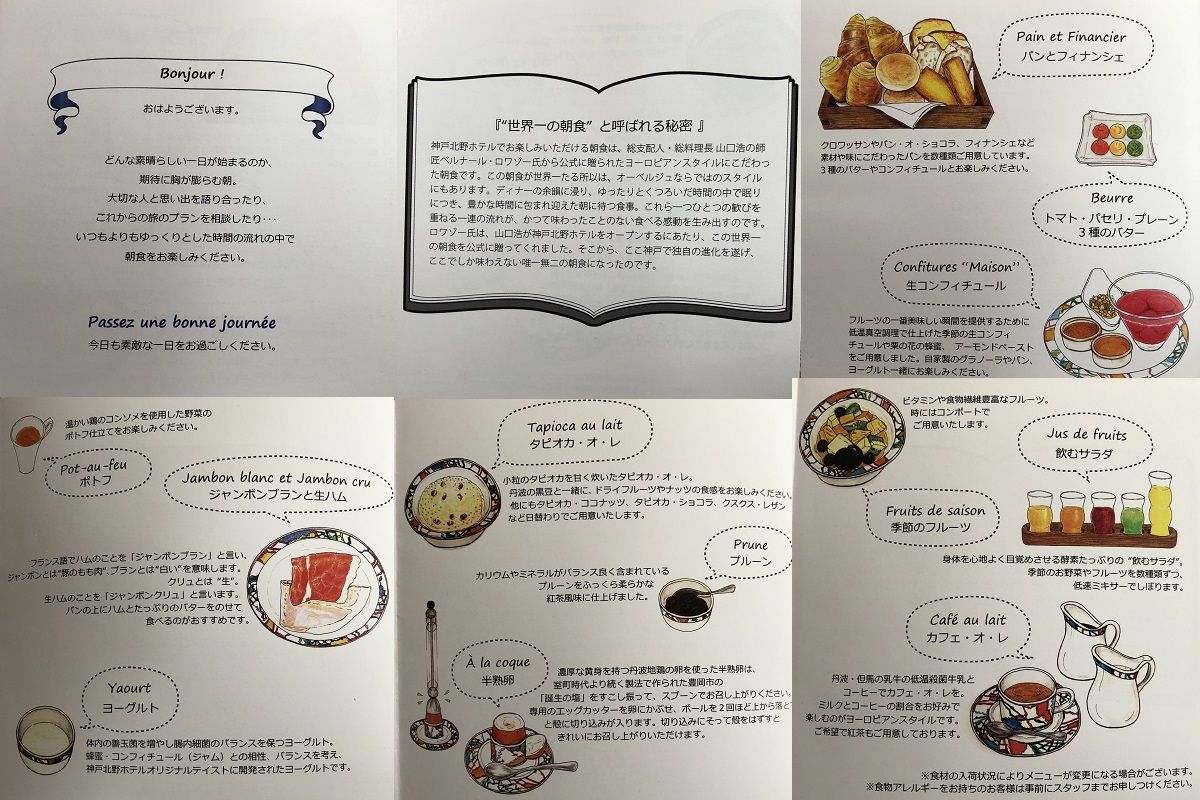 Bonjour !
おはようございます。
どんな素晴らしい一日が始まるのか、
期待に胸が膨らむ朝。
大切な人と思い出を語り合ったり、
これからの旅のプランを相談したり･･･
いつもよりもゆっくりとした時間の流れの中で
朝食をお楽しみください。
Passez une bonne journée
今日も素敵な一日をお過ごしください。
『“世界一の朝食” と呼ばれる秘密 』
神戸北野ホテルでお楽しみいただける朝食は、総支配人・総料理長 山口浩の師
匠ベルナール・ロワゾー氏から公式に贈られたヨーロピアンスタイルにこだわっ
た朝食です。この朝食が世界一たる所以は、オーベルジュならではのスタイル
にもあります。ディナーの余韻に浸り、ゆったりとくつろいだ時間の中で眠り
につき、豊かな時間に包まれ迎えた朝に待つ食事。これら一つひとつの歓びを
重ねる一連の流れが、かつて味わったことのない食べる感動を生み出すのです。
ロワゾー氏は、山口浩が神戸北野ホテルをオープンするにあたり、この世界一
の朝食を公式に贈ってくれました。そこから、ここ神戸で独自の進化を遂げ、
ここでしか味わえない唯一無二の朝食になったのです。
Pain et Financier
パンとフィナンシェ
クロワッサンやパン・オ・ショコラ、フィナンシェなど
素材や味にこだわったパンを数種類ご用意しています。
3種のバターやコンフィチュールとお楽しみください。
Beurre
トマト・パセリ・プレーン
3種のバター
Confitures “Maison”
生コンフィチュール
フルーツの一番美味しい瞬間を提供するために
低温真空調理で仕上げた季節の生コンフィ
チュールや栗の花の蜂蜜、アーモンドペースト
をご用意しました。自家製のグラノーラやパン、
ヨーグルト一緒にお楽しみください。
温かい鶏のコンソメを使用した野菜の
ポトフ仕立てをお楽しみください。
Pot-au-feu
ポトフ
Jambon blanc et Jambon cru
ジャンボンブランと生ハム
フランス語でハムのことを「ジャンボンブラン」と言い、
ジャンボンとは“豚のもも肉”、ブランとは“白い”を意味します。
クリュとは “生”。
生ハムのことを「ジャンボンクリュ」と言います。
パンの上にハムとたっぷりのバターをのせて
食べるのがおすすめです。
Yaourt
ヨーグルト
体内の善玉菌を増やし腸内細菌のバランスを保つヨーグルト。
蜂蜜・コンフィチュール（ジャム）との相性、バランスを考え、
神戸北野ホテルオリジナルテイストに開発されたヨーグルトです。
Tapioca au lait
タピオカ・オ・レ
小粒のタピオカを甘く炊いたタピオカ・オ・レ。
丹波の黒豆と一緒に、ドライフルーツやナッツの食感をお楽しみください。
他にもタピオカ・ココナッツ、タピオカ・ショコラ、クスクス・レザン
など日替わりでご用意いたします。
Prune
プルーン
カリウムやミネラルがバランス良く含まれている
プルーンをふっくら柔らかな
紅茶風味に仕上げました。
À la coque
半熟卵
濃厚な黄身を持つ丹波地鶏の卵を使った半熟卵は、
室町時代より続く製法で作られた豊岡市の
「誕生の塩」をすこし振って、スプーンでお召し上がりください。
専用のエッグカッターを卵にかぶせ、ボールを2回ほど上から落と
と殻に切り込みが入ります。切り込みにそって殻をはずすと
きれいにお召し上がりいただけます。
ビタミンや食物繊維豊富なフルーツ。
時にはコンポートで
ご用意いたします。
Jus de fruits
飲むサラダ
Fruits de saison
季節のフルーツ
身体を心地よく目覚めさせる酵素たっぷりの “飲むサラダ”。
季節のお野菜やフルーツを数種類ずつ、
低速ミキサーでしぼります。
Café au lait
カフェ・オ・レ
丹波・但馬の乳牛の低温殺菌牛乳と
コーヒーでカフェ・オ・レを。
ミルクとコーヒーの割合をお好みで
楽しむのがヨーロピアンスタイルです。
ご希望で紅茶もご用意しております。
※食材の入荷状況によりメニューが変更になる場合がございます。
※食物アレルギーをお持ちのお客様は事前にスタッフまでお申しつけください。